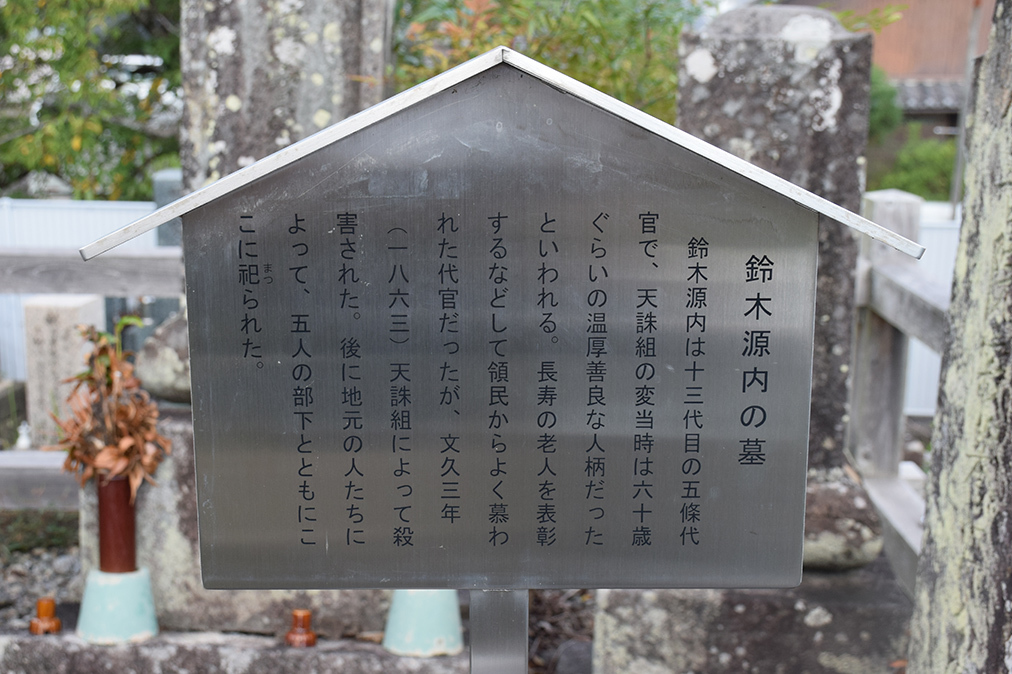 鈴木源内の墓
鈴木源内は十三代目の五條代
官で、天誅組の変当時は六十歳
ぐらいの温厚善良な人柄だった
といわれる。長寿の老人を表彰
するなどして領民からよく慕わ
れた代官だったが、文久三年
（一八六三）天誅組によって殺
害された。後に地元の人たちに
よって、五人の部下とともにこ
こに祀られた。
まつ